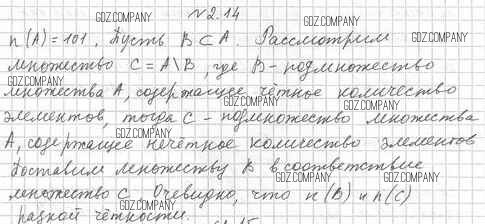 №2.14
n(A)=101. Пусть B⊂A. Рассмотрим
множество C=A\B, где B-подмножество
множества A, содержащее чётное количество
элементов, тогда C-подмножество множества
A, содержащее нечётное количество элементов
Поставим множеству B в соответствие
множество C. Очевидно, что n(B) и n(C)
разной чётности.
GDZ.COMPANY
GDZ.COMPANY
GDZ.COMPANY
GDZ.COMPANY
GDZ.COMPANY
GDZ.COMPANY
GDZ.COMPANY
GDZ.COMPANY
GDZ.COMPANY
GDZ.COMPANY
GDZ.COMPANY